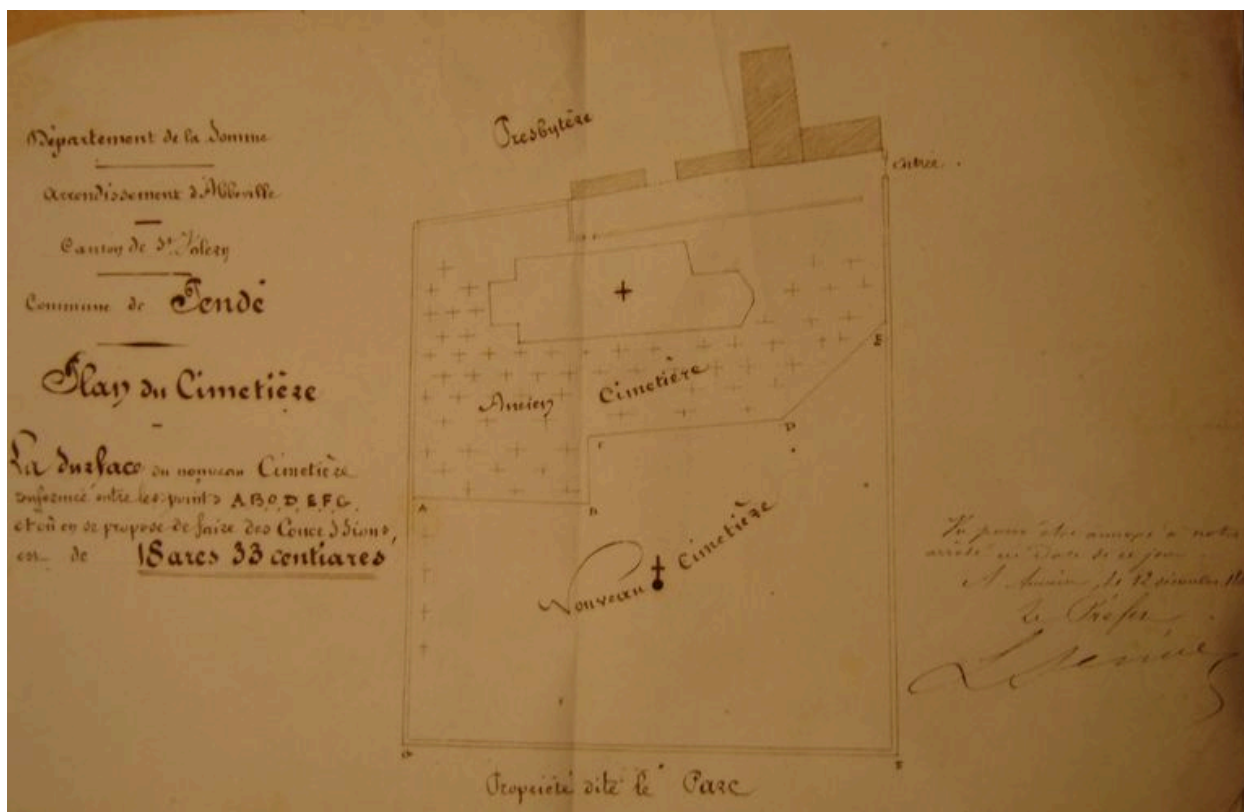 Département de la Somme
Arrondissement d'Abbeville
Canton de St Valery
Commune de Pendé
Plan du Cimetière
La Surface du nouveau Cimetière
renfermée entre les points A, B, C, D, E, F, G,
et où on se propose de faire des Concessions,
est de 18 ares 33 centiares
Presbytère
Entrée
Ancien Cimetière
A
B
C
D
E
Nouveau Cimetière
G
F
Propriété dite le Parc
Vu pour être annexé à notre
arrêté en Date de ce jour
A Amiens, le 12 décembre
Le Préfet